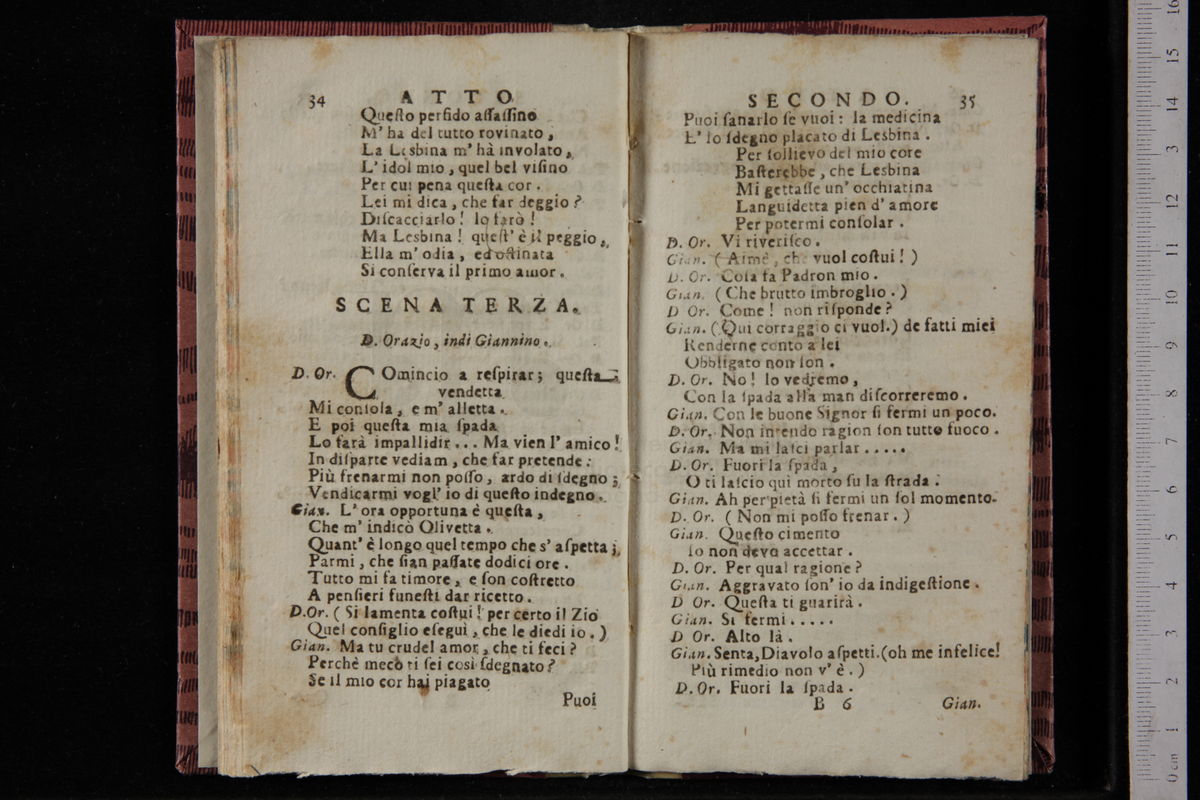 34 ATTO
Queſto perfido aſſaſſino
M' ha del tutto rovinato,
La Lesbina m' hà involato,
L' idol mio, quel bel viſino
Per cui pena queſta cor.
Lei mi dica, che far deggio?
Diſcacciarlo! lo farò!
Ma Lesbina! queſt' è il peggio,
Ella m' odia, ed oſtinata
Si conſerva il primo amor.
SCENA TERZA.
D. Orazio, indi Giannino.
D. Or. COmincio a reſpirar; queſta
vendetta
Mi conſola, e m' alletta.
E poi queſta mia ſpada
Lo farà impallidir... Ma vien l' amico!
In diſparte vediam, che far pretende:
Più frenarmi non poſſo, ardo di ſdegno;
Vendicarmi vogl' io di queſto indegno.
Gian. L' ora opportuna è queſta,
Che m' indicò Olivetta.
Quant' è longo quel tempo che s' aſpetta;
Parmi, che ſian paſſate dodici ore.
Tutto mi fa timore, e ſon coſtretto
A penſieri funeſti dar ricetto.
D. Or. (Si lamenta coſtui! per certo il Zio
Quel conſiglio eſeguì, che le diedi io.)
Gian. Ma tu crudel amor, che ti feci?
Perchè meco ti ſei così ſdegnato?
Se il mio cor hai piagato
Puoi
SECONDO. 35
Puoi ſanarlo ſe vuoi: la medicina
E' lo ſdegno placato di Lesbina.
Per ſollievo del mio core
Baſterebbe, che Lesbina
Mi gettaſſe un' occhiatina
Languidetta pien d' amore
Per potermi conſolar.
D. Or. Vi riveriſco.
Gian. (Aimè, che vuol coſtui!)
D. Or. Coſa fa Padron mio.
Gian. (Che brutto imbroglio.)
D Or. Come! non riſponde?
Gian. (Qui corraggio ci vuol.) de fatti miei
Renderne conto a lei
Obbligato non ſon.
D. Or. No! lo vedremo,
Con la ſpada alla man diſcorreremo.
Gian. Con le buone Signor ſi fermi un poco.
D. Or. Non intendo ragion ſon tutto fuoco.
Gian. Ma mi laſci parlar.....
D. Or. Fuori la ſpada,
O ti laſcio quì morto ſu la ſtrada.
Gian. Ah per pietà ſi fermi un ſol momento.
D. Or. (Non mi poſſo frenar.)
Gian. Queſto cimento
Io non devo accettar.
D. Or. Per qual ragione?
Gian. Aggravato ſon' io da indigeſtione.
D Or. Queſta ti guarirà.
Gian. Si fermi.....
D Or. Alto là.
Gian. Senta, Diavolo aſpetti. (oh me infelice!
Più rimedio non v' è.)
D. Or. Fuori la ſpada.
B 6 Gian.